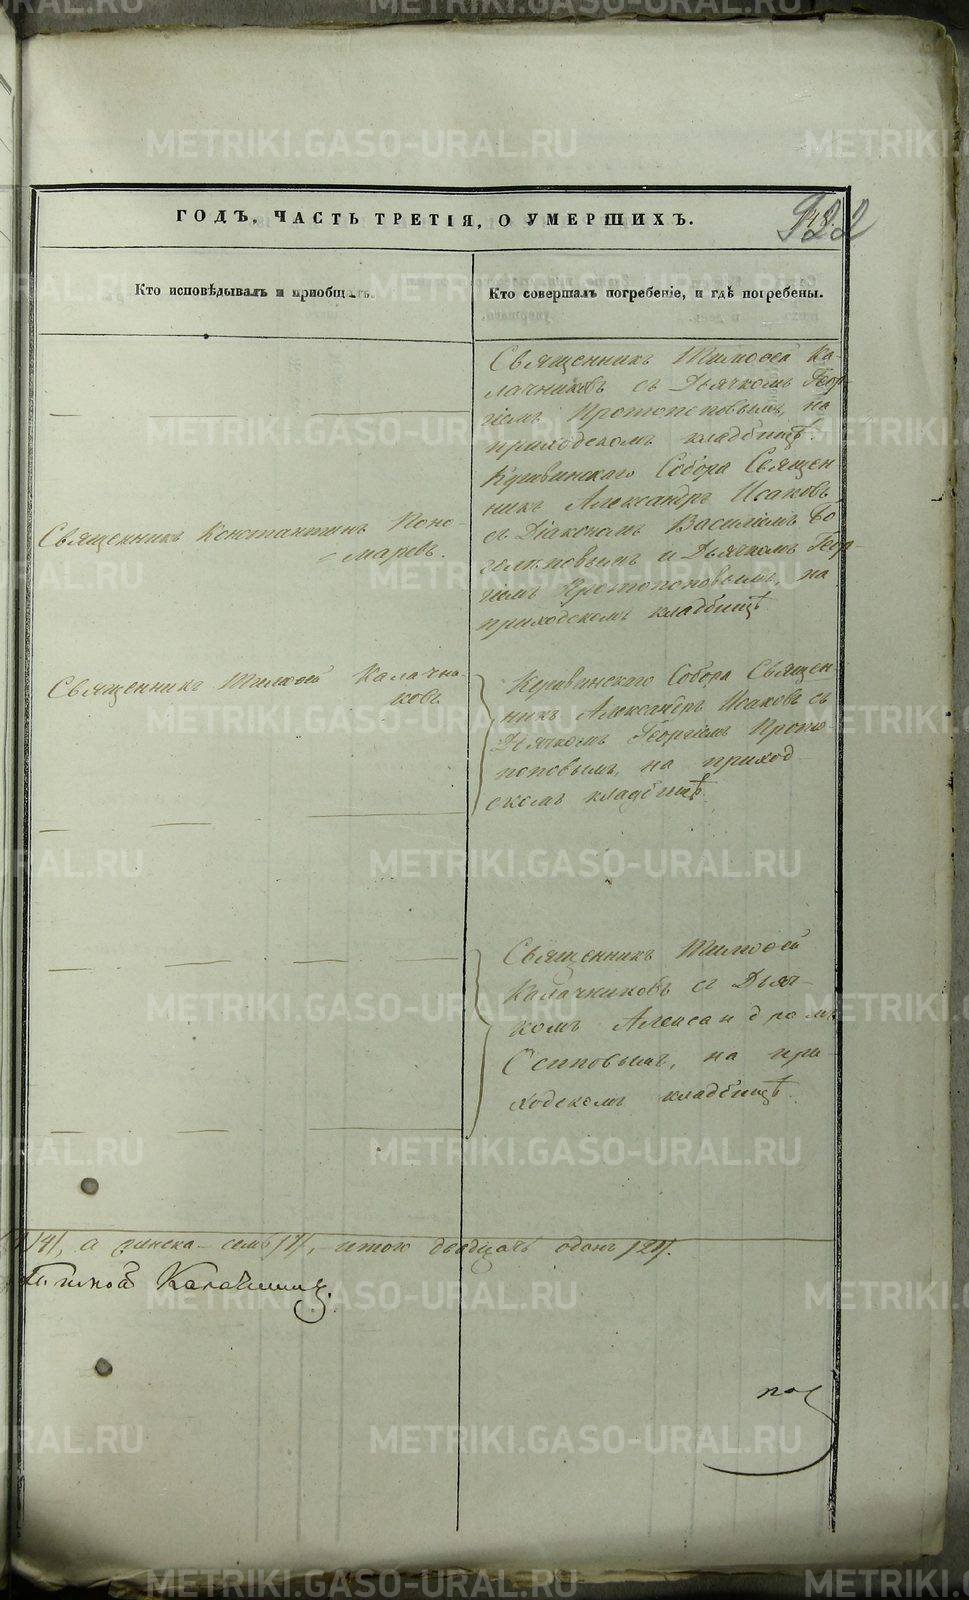 ГОДЪ, ЧАСТЬ ТРЕТІЯ, О УМЕРШИХЪ.
922
Кто исповѣдывалъ и пріобщалъ.
Кто совершалъ погребеніе, и гдѣ погребены.
Священникъ Тимоѳей Ка-
лачниковъ съ Дьячкомъ Геор-
гіемъ Протопоповымъ, на
приходскомъ кладбищѣ.
Священникъ Константинъ Поно-
маревъ.
Кушвинскаго Собора Священ
никъ Александръ Исаковъ
съ Діакономъ Василіемъ Бо
и Дьячкомъ Геор-
гіемъ Протопоповымъ, на
приходскомъ кладбищѣ
Священникъ Тимоѳей Калачни-
ковъ
Кушвинскаго Собора Священ
никъ Александръ Исаковъ съ
Дьячкомъ Георгіемъ Прото-
поповымъ, на приход
скомъ кладбищѣ.
Священникъ Тимоѳей
Калачниковъ съ Дьяч-
комъ Александромъ
Осиповымъ, на при-
ходскомъ кладбищѣ.
/14/, а женска – семь /7/, итого двадцать одинъ /21/.
Тимоѳей Калачниковъ.
по
METRIKI.GASO-URAL.RU